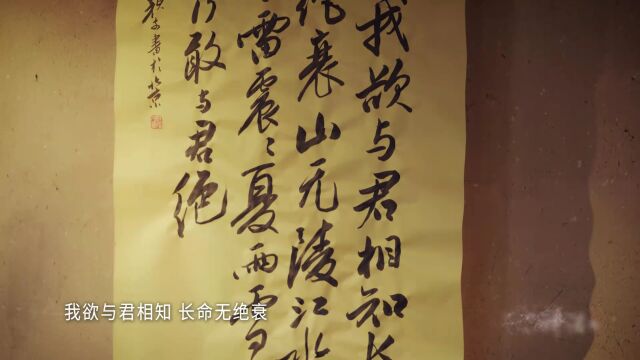 我欲与君相知长
绝衰山无陵江水
雷震〻夏雨雪
敢与君绝
書於北京
我欲与君相知 长命无绝衰